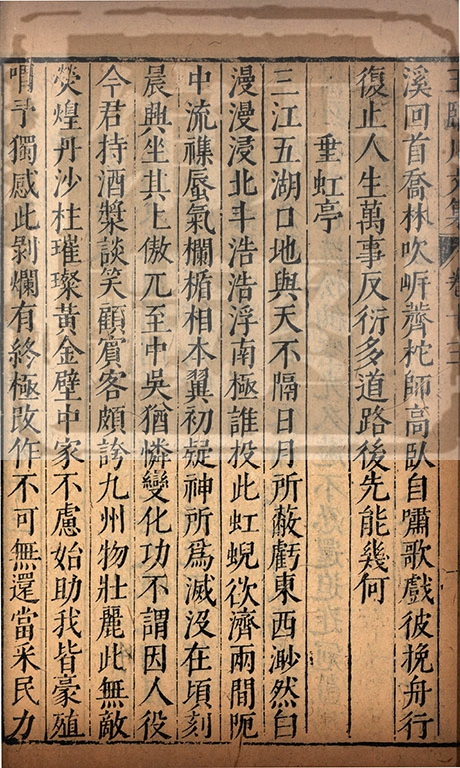 王臨川文集 卷十三
溪回首喬林吹㟁薺柁師高臥自嘯歌戲彼挽舟行
復止人生萬事反衍多道路後先能幾何
垂虹亭
三江五湖口地與天不隔日月所蔽虧東西渺然白
漫漫浸北斗浩浩浮南極誰投此虹蜺欲濟兩間阨
中流雜蜃氣欄楯相承翼初疑神所爲滅没在頃刻
晨興坐其上傲兀至中吳猶憐變化功不謂因人役
今君持酒漿談笑顧賓客頗誇九州物壯麗此無敵
熒煌丹沙柱璀璨黃金壁中家不慮始助我皆豪殖
喟予獨感此剥爛有終極改作不可無還當采民力